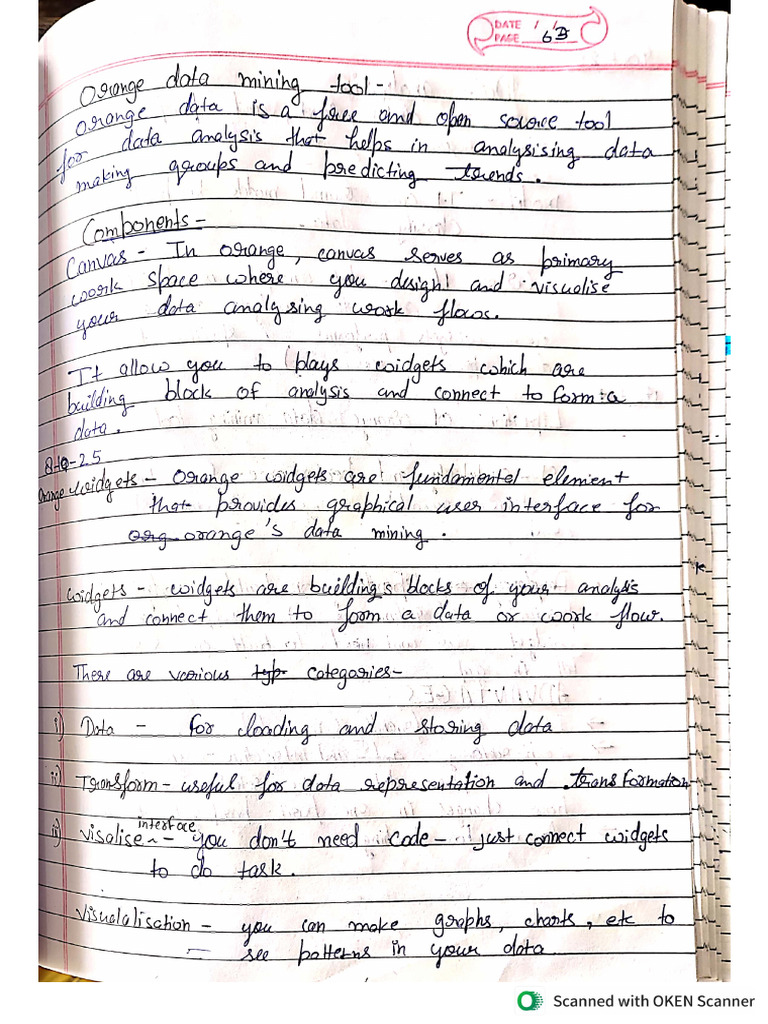 DATE / /
PAGE 63
Orange data mining tool-
Orange data is a free and open source tool
for data analysis that helps in analysising data
making groups and predicting trends.
Components-
Canvas - In orange, canvas serves as primary
work space where you design and visualise
your data analysing work flows.
It allow you to plays widgets which are
building block of analysis and connect to form a
data.
Orange widgets - Orange widgets are fundamental element
that provides graphical user interface for
org orange's data mining.
Widgets - widgets are building's blocks of your analysis
and connect them to form a data or work flow.
There are various typ categories-
i) Data - for loading and storing data
ii) Transform - useful for data representation and transformation
interface
ii) Visalise - you don't need code - just connect widgets
to do task.
Visualalisation - you can make graphs, charts, etc to
- see patterns in your data
Scanned with OKEN Scanner